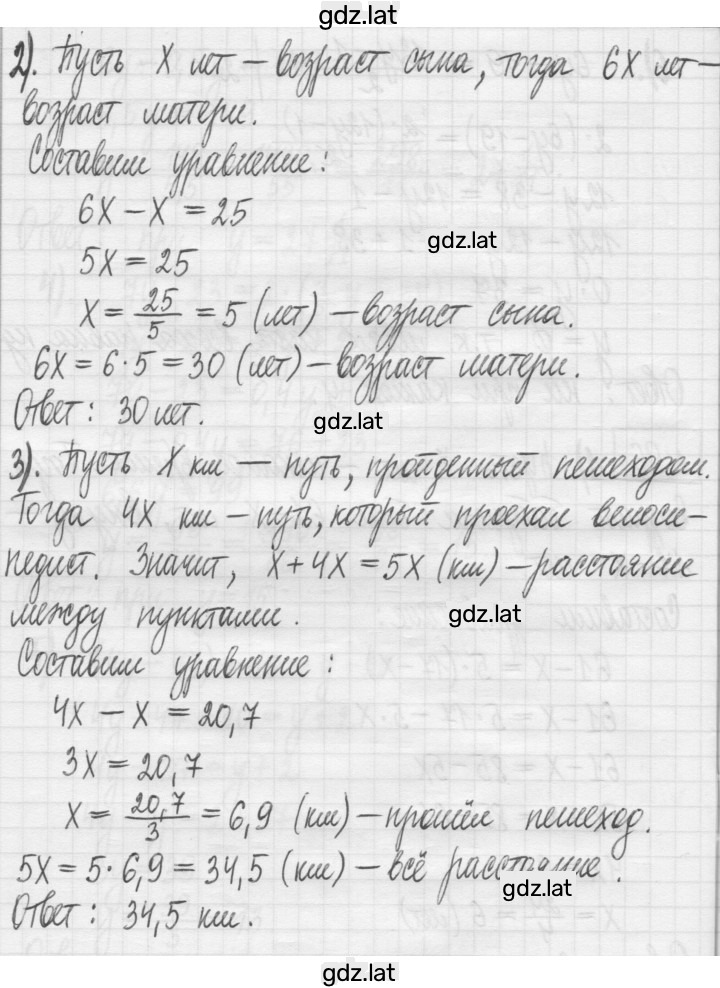 gdz.lat
2). Пусть X лет – возраст сына, тогда 6X лет –
возраст матери.
Составим уравнение:
6X – X = 25
gdz.lat
5X = 25
X = 25/5 = 5 (лет) – возраст сына.
6X = 6·5 = 30 (лет) – возраст матери.
Ответ: 30 лет.
gdz.lat
3). Пусть X км – путь, пройденный пешеходом.
Тогда 4X км – путь, который проехал велоси-
педист. Значит, X + 4X = 5X (км) – расстояние
между пунктами.
gdz.lat
Составим уравнение:
4X – X = 20,7
3X = 20,7
X = 20,7/3 = 6,9 (км) – прошёл пешеход.
5X = 5·6,9 = 34,5 (км) – всё расстояние.
gdz.lat
Ответ: 34,5 км.
gdz.lat